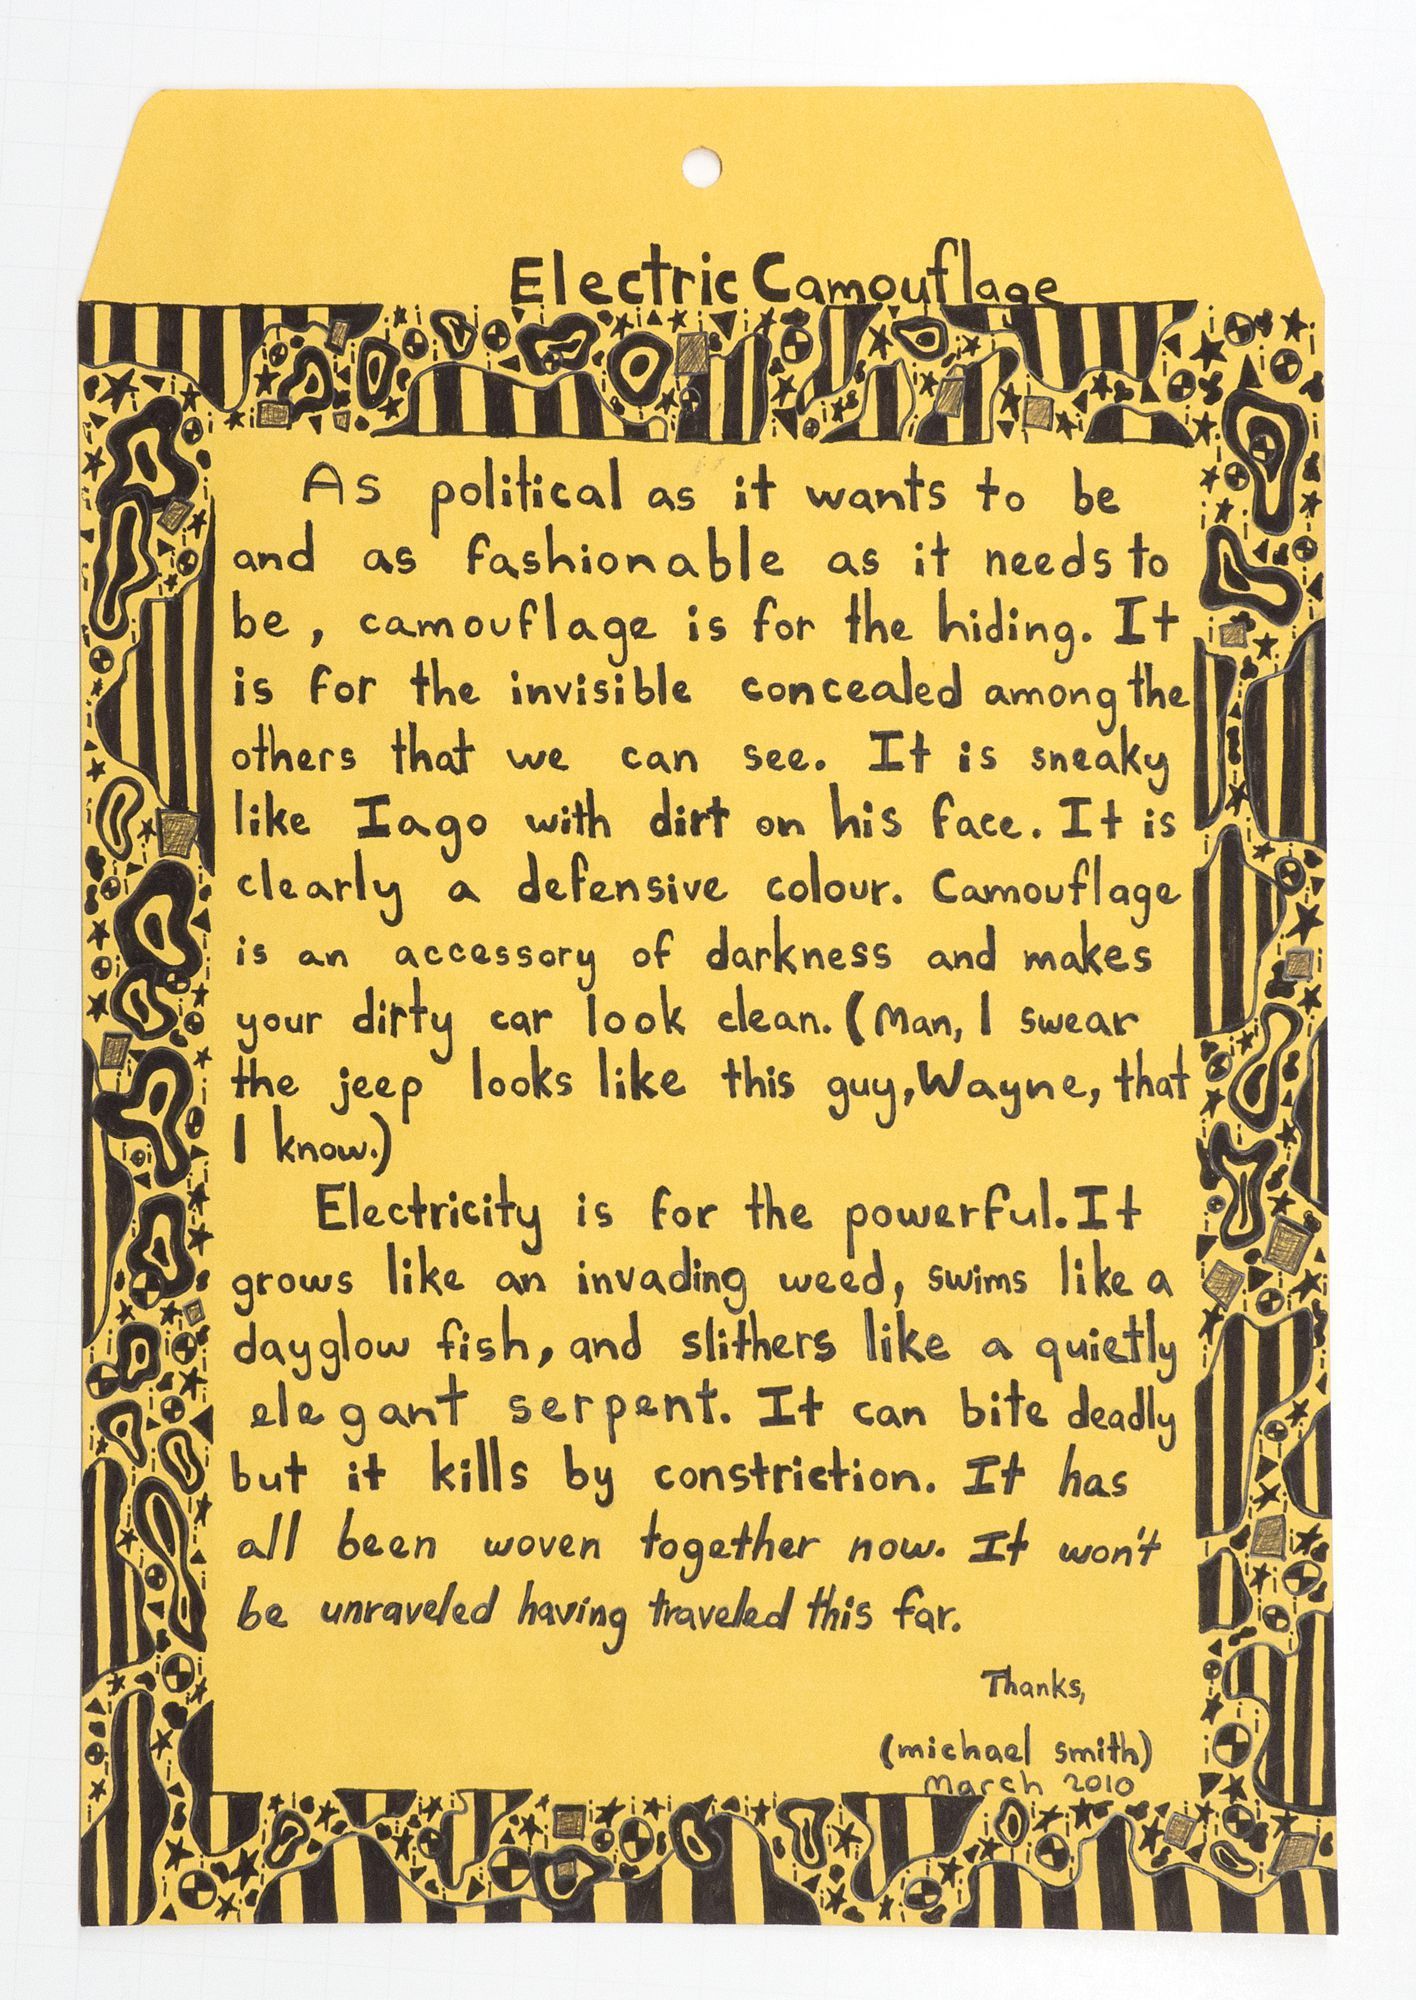 Electric Camouflage
As political as it wants to be
and as fashionable as it needs to
be, camouflage is for the hiding. It
is for the invisible concealed among the
others that we can see. It is sneaky
like Iago with dirt on his face. It is
clearly a defensive colour. Camouflage
is an accessory of darkness and makes
your dirty car look clean. (Man, I swear
the jeep looks like this guy, Wayne, that
I know.)
Electricity is for the powerful. It
grows like an invading weed, swims like a
dayglow fish, and slithers like a quietly
elegant serpent. It can bite deadly
but it kills by constriction. It has
all been woven together now. It won't
be unraveled having traveled this far.
Thanks,
(michael smith)
March 2010